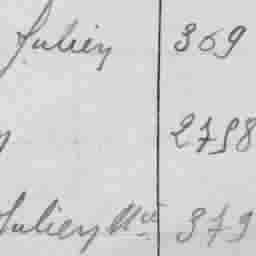 Julien 369
2798
Julien Mie 379